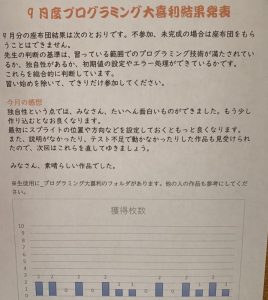 9月度プログラミング大喜利結果発表
9月分の座布団結果は次のとおりです。不参加、未完成の場合は座布団をもら
うことはできません。
先生の判断の基準は、習っている範囲でのプログラミング技術が満たされてい
るか、独自性があるか、初期値の設定やエラー処理ができているかです。
これらを総合的に判断しています。
習い始めを除いて、できりだけ参加してください。
今月の感想
独自性という点では、みなさん、たいへん面白いものができました。もう少し
作り込むとなお良くなります。
最初にスプライトの位置や方向などを設定しておくともっと良くなります。
また、説明がなかったり、テスト不足で動かなかったりした作品も見受けられ
たので、次回はこれらを直してゆきましょう。
みなさん、素晴らしい作品でした。
※生徒使用に_プログラミング大喜利のフォルダがあります。他の人の作品も参考にしてくだ
さい。
獲得枚数
10
9
8
7
6
5
4
3
2
1
0